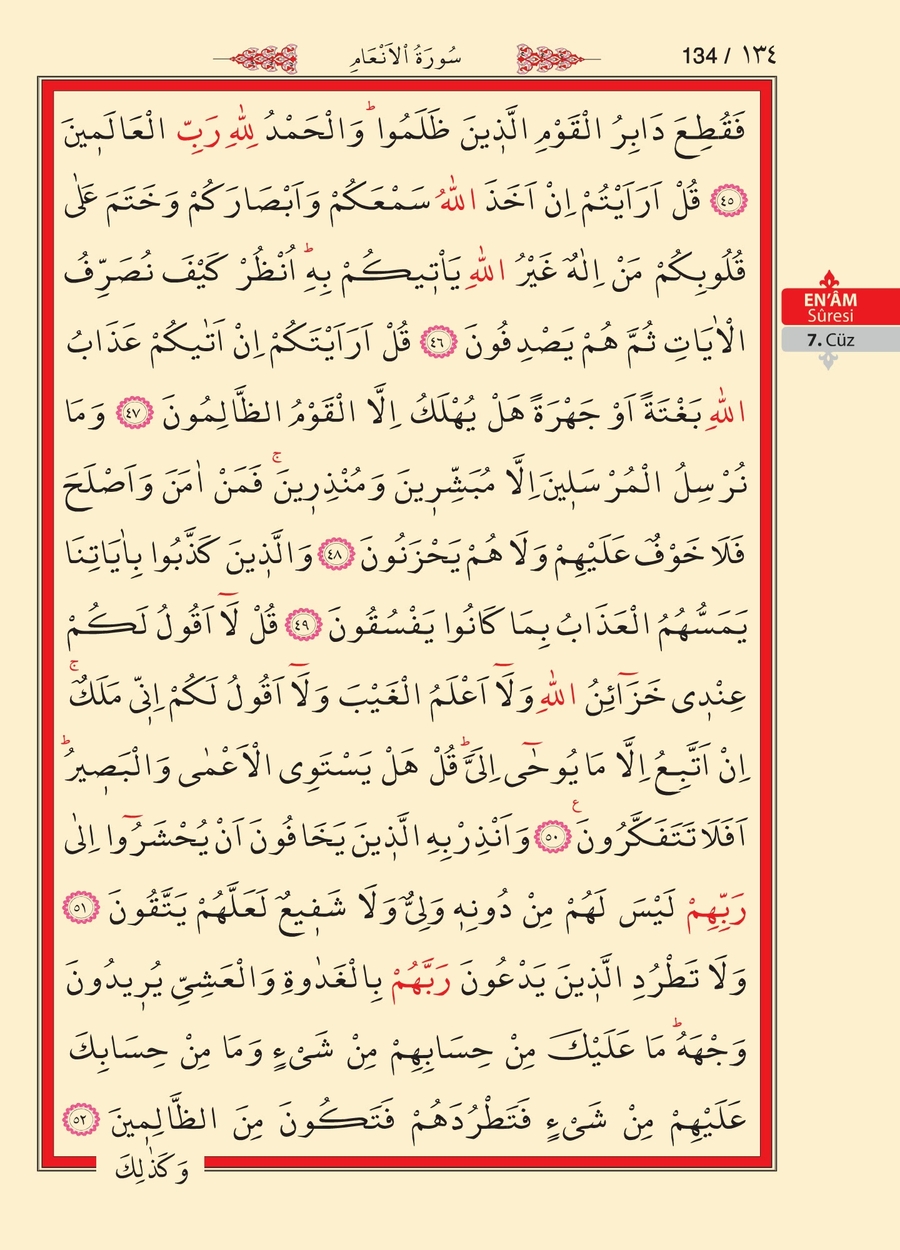 سُورَةُ الْاَنْعَامِ
134 / ١٣٤
فَقُطِعَ دَابِرُ الْقَوْمِ الَّذ۪ينَ ظَلَمُواۜ وَالْحَمْدُ لِلّٰهِ رَبِّ الْعَالَم۪ينَ
٤٥ قُلْ اَرَاَيْتُمْ اِنْ اَخَذَ اللّٰهُ سَمْعَكُمْ وَاَبْصَارَكُمْ وَخَتَمَ عَلٰى
قُلُوبِكُمْ مَنْ اِلٰهٌ غَيْرُ اللّٰهِ يَأْت۪يكُمْ بِهِۜ اُنْظُرْ كَيْفَ نُصَرِّفُ
الْاٰيَاتِ ثُمَّ هُمْ يَصْدِفُونَ ٤٦ قُلْ اَرَاَيْتَكُمْ اِنْ اَتٰيكُمْ عَذَابُ
اللّٰهِ بَغْتَةً اَوْ جَهْرَةً هَلْ يُهْلَكُ اِلَّا الْقَوْمُ الظَّالِمُونَ ٤٧ وَمَا
نُرْسِلُ الْمُرْسَل۪ينَ اِلَّا مُبَشِّر۪ينَ وَمُنْذِر۪ينَۚ فَمَنْ اٰمَنَ وَاَصْلَحَ
فَلَا خَوْفٌ عَلَيْهِمْ وَلَا هُمْ يَحْزَنُونَ ٤٨ وَالَّذ۪ينَ كَذَّبُوا بِاٰيَاتِنَا
يَمَسُّهُمُ الْعَذَابُ بِمَا كَانُوا يَفْسُقُونَ ٤٩ قُلْ لَٓا اَقُولُ لَكُمْ
عِنْد۪ي خَزَٓائِنُ اللّٰهِ وَلَٓا اَعْلَمُ الْغَيْبَ وَلَٓا اَقُولُ لَكُمْ اِنّ۪ي مَلَكٌۚ
اِنْ اَتَّبِعُ اِلَّا مَا يُوحٰٓى اِلَيَّۜ قُلْ هَلْ يَسْتَوِي الْاَعْمٰى وَالْبَص۪يرُۜ
اَفَلَا تَتَفَكَّرُونَ ع ٥٠ وَاَنْذِرْ بِهِ الَّذ۪ينَ يَخَافُونَ اَنْ يُحْشَرُٓوا اِلٰى
رَبِّهِمْ لَيْسَ لَهُمْ مِنْ دُونِه۪ وَلِيٌّ وَلَا شَف۪يعٌ لَعَلَّهُمْ يَتَّقُونَ ٥١
وَلَا تَطْرُدِ الَّذ۪ينَ يَدْعُونَ رَبَّهُمْ بِالْغَدٰوةِ وَالْعَشِيِّ يُر۪يدُونَ
وَجْهَهُۜ مَا عَلَيْكَ مِنْ حِسَابِهِمْ مِنْ شَيْءٍ وَمَا مِنْ حِسَابِكَ
عَلَيْهِمْ مِنْ شَيْءٍ فَتَطْرُدَهُمْ فَتَكُونَ مِنَ الظَّالِم۪ينَ ٥٢
وَكَذٰلِكَ
EN'ÂM
Sûresi
7. Cüz